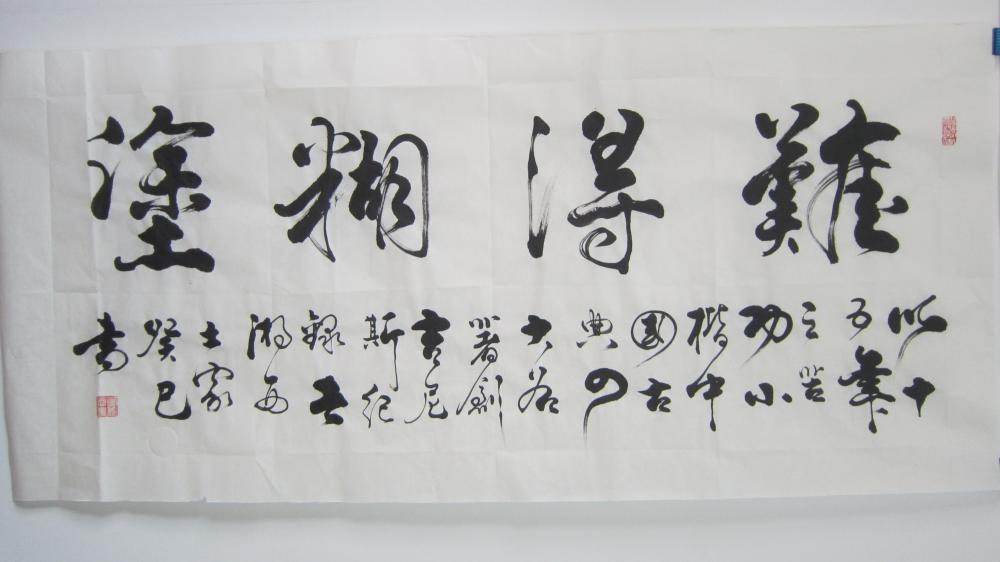 難得糊塗
以十
五年
之苦
功小
楷中
國古
典四
大名
著創
吉尼
斯紀
録者
湘西
土家
癸巳
書